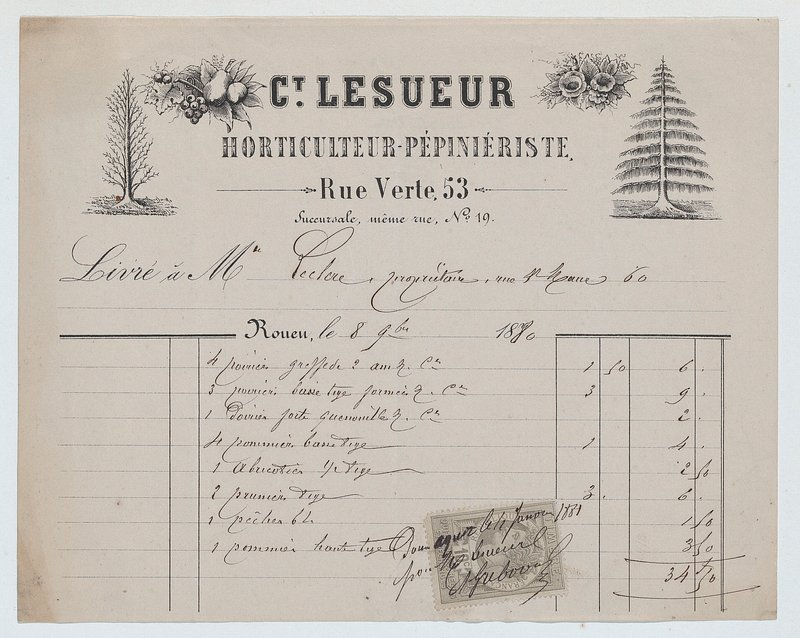 CT. LESUEUR
HORTICULTEUR-PÉPINIÉRISTE,
Rue Verte, 53
Succursale, même rue, No. 19.
Livré à Mr Leclerc, propriétaire, rue St 60
Rouen, le 8 9bre 1880
4 poiriers greffe de 2 ans 1 50 6 .
3 poiriers basse tige formés 3 9 .
1 forte quenouille 2 .
4 pommiers basse tige 1 4 .
1 Abricotier 1/2 tige 2 50
2 pruniers tige 3 . 6 .
1 pêcher 1 50
1 pommier haute tige 3 50
34 50
Pour acquit le 4 Janvier 1881
pour Mr Lesueur